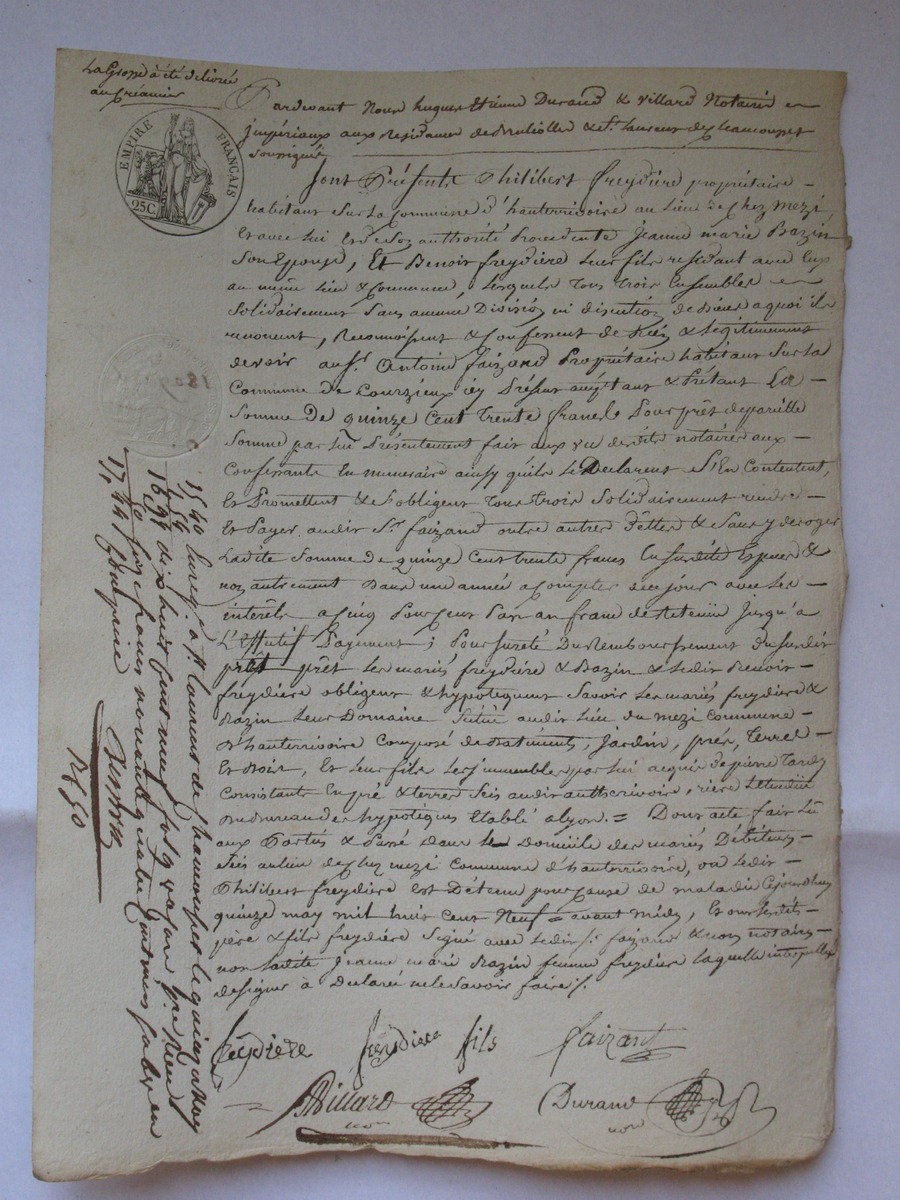 La Grosse à été délivrée
au créancier
EMPIRE FRANÇAIS
25C
Pardevant Nous hugues Etienne Durand & Villard Notaires
jmpériaux aux Residances de Brulliolles & St. Laurent de Chamousset
soussignés
Sont Présents Philibert freydière propriétaire
habitant sur la Commune d'hauterivoire au lieu de chez Mezi,
et avec lui et de son authorité Procedente Jeanne marie Bazin
son Epouse, Et Benoit freydière leur fils residant avec Eux
au même lieu & Commune, lesquels tous trois Ensembles
solidairement sans aucune Division ni discution de biens a quoi ils
renoncent, Reconnoissent & Confessent de bien & légitimement
devoir au Sr. Antoine faizand Propriétaire habitant sur la
Commune de Courzieux icy Présent acceptant & Prétant La
Somme De quinze Cent trente francs Pour prêt de pareille
Somme par lui Présentement fait aux vu desdits notaires aux
Confessants En numeraire ainsy qu'ils le Déclarent S'En Contentent,
Et Promettent & s'obligent tous trois solidairement rendre
Et Payer audit Sr. faizand outre autres dettes & sans y deroger
Ladite Somme de quinze Cent trente francs En susdite Espece &
non autrement Dans une année a compter de ce jour avec les
interêts a cinq Pour Cent Par an franc de retenue jusqu'a
L'Effectif Payement; Pour sureté Du Remboursement du susdit
prêt Les mariés freydière & Bazin & ledit Benoit
freydière obligent & hypotèquent Savoir les mariés freydière &
Bazin Leur Domaine Situé audit lieu du mezi Commune
d'hauterivoire Composé de Batiments, Jardin, prés, Terres
Et Bois, Et leur fils les immeubles par lui acquis de pierre Tardy
Consistants En pré & terres Sis audit authscrivoire, riere l'étendue
du bureau des hypotèques Etabli a lyon. = Dont acte fait Lû
aux Parties & Passé dans le Domicile des mariés Débiteurs
audit lieu de chez mezi Commune d'hauterivoire, ou ledit
Philibert freydière Est Détenu pour cause de maladie Cejourdhuy
quinze may mil huit Cent Neuf = avant midy, Et ont lesdits
père & fils freydière Signé avec ledit Sr. faizand & nous notaires
non ladite Jeanne marie Bazin femme freydière laquelle interpellée
de signer à Déclaré ne le Savoir faire /.
freydiere freydiere fils faizant
Villard Durand
not. not.
1540 Enreg. a St. Laurent de Chamousset le quinze May
154 dix huit Cent neuf fol 9
1694 Reçu
10 Seize francs nonante quatre Centimes
17,04